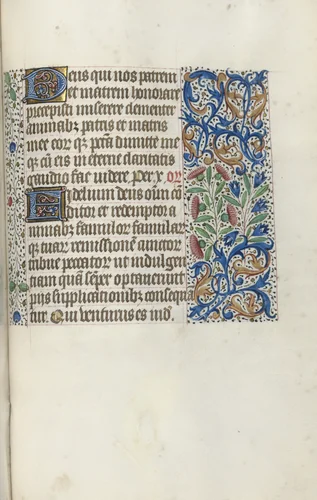 Deus qui nos patrem
et matrem honorare
precepisti miserere clementer
animabꝫ patris et matris
mee eorqꝫ pctā dimitte me
qꝫ cū eis in eterne claritatis
gaudio fac videre per x Or
Fidelium deus oīm cō
ditor et redemptor a
nimabꝫ famulor famular
qꝫ tuar remissionē cunctor
tribue pctātor ut indulgen
tiam quā semper optaverunt
piis supplicationibꝫ consequā
tur. Qui venturus es iud.